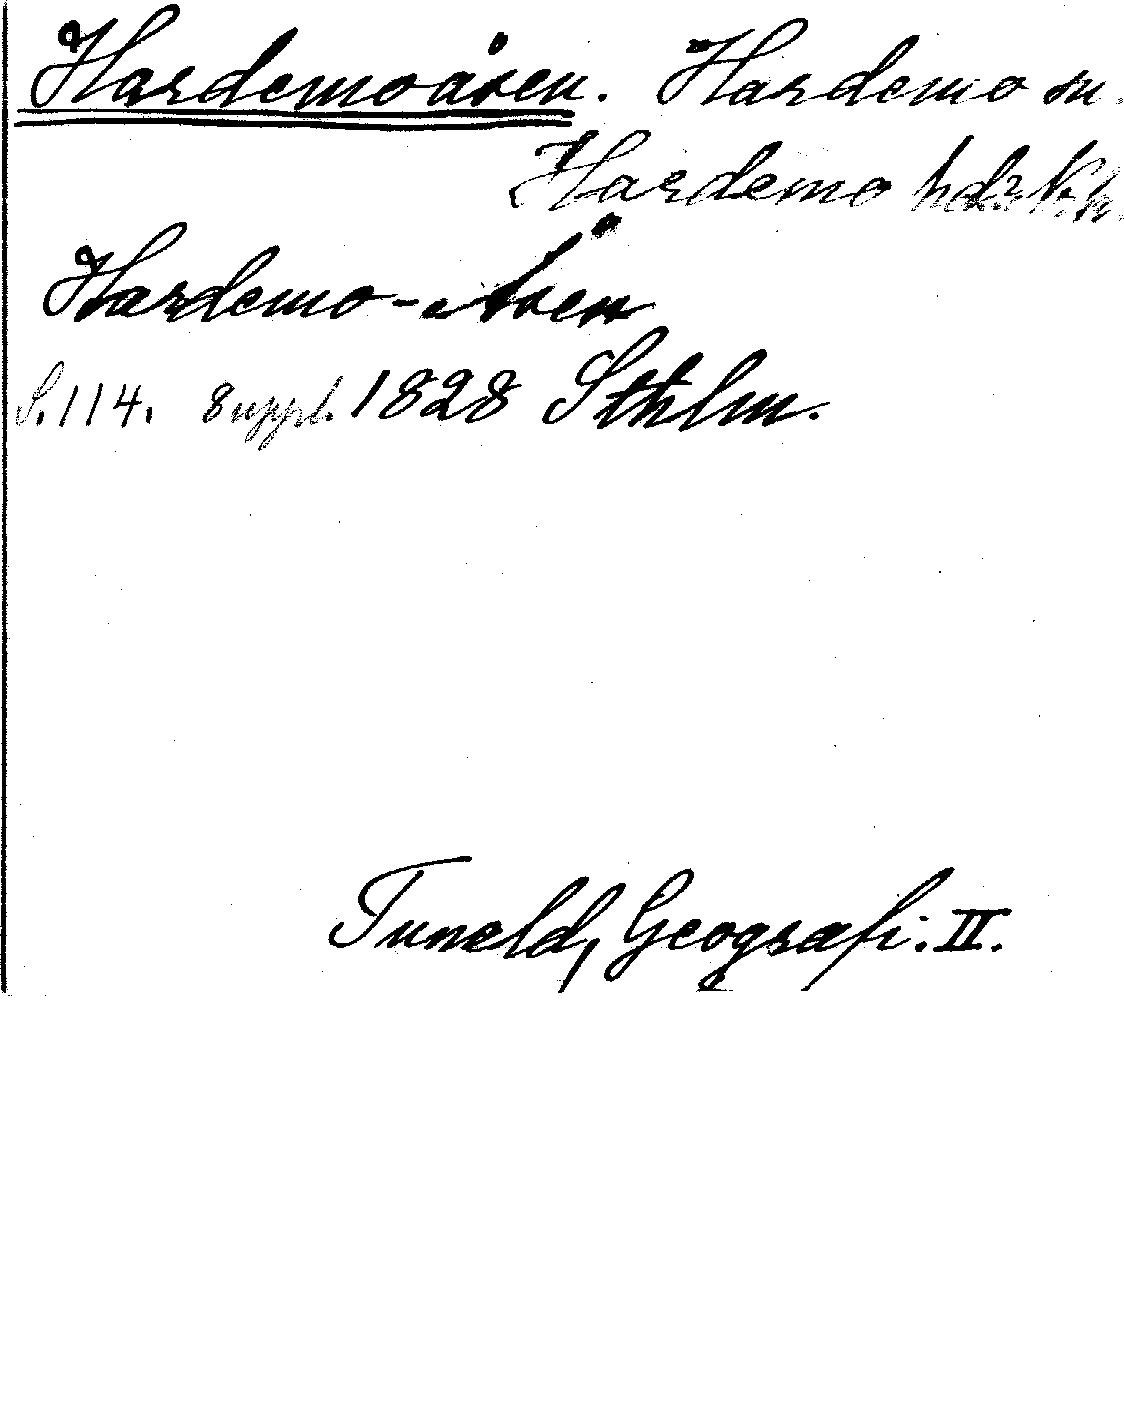 Hardemoåsen. Hardemo sn.
Hardemo hdr N. h.
Hardemo-Åsen
S. 114. Suppl. 1828 Sthlm.
Tuneld, Geografi. II.